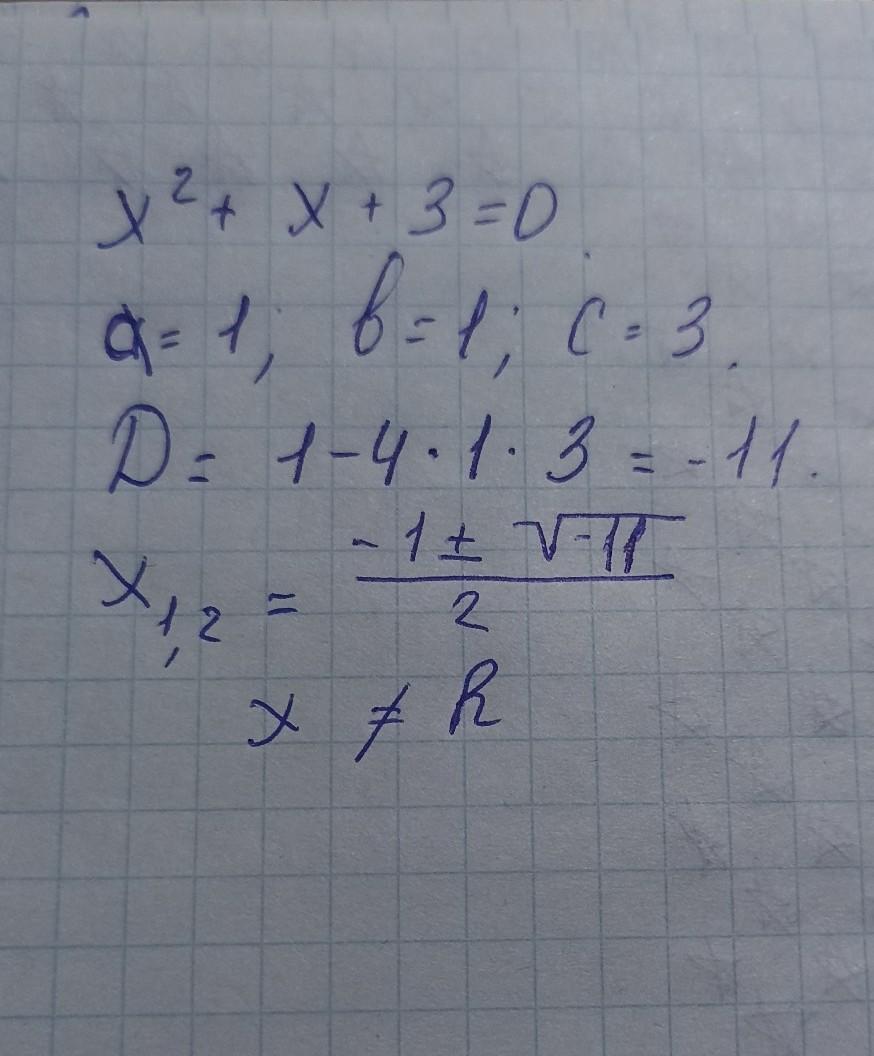 x² + x + 3 = 0
a = 1; b = 1; c = 3.
D = 1 - 4 · 1 · 3 = -11.
x₁,₂ = (-1 ± √-11) / 2
x ≠ R